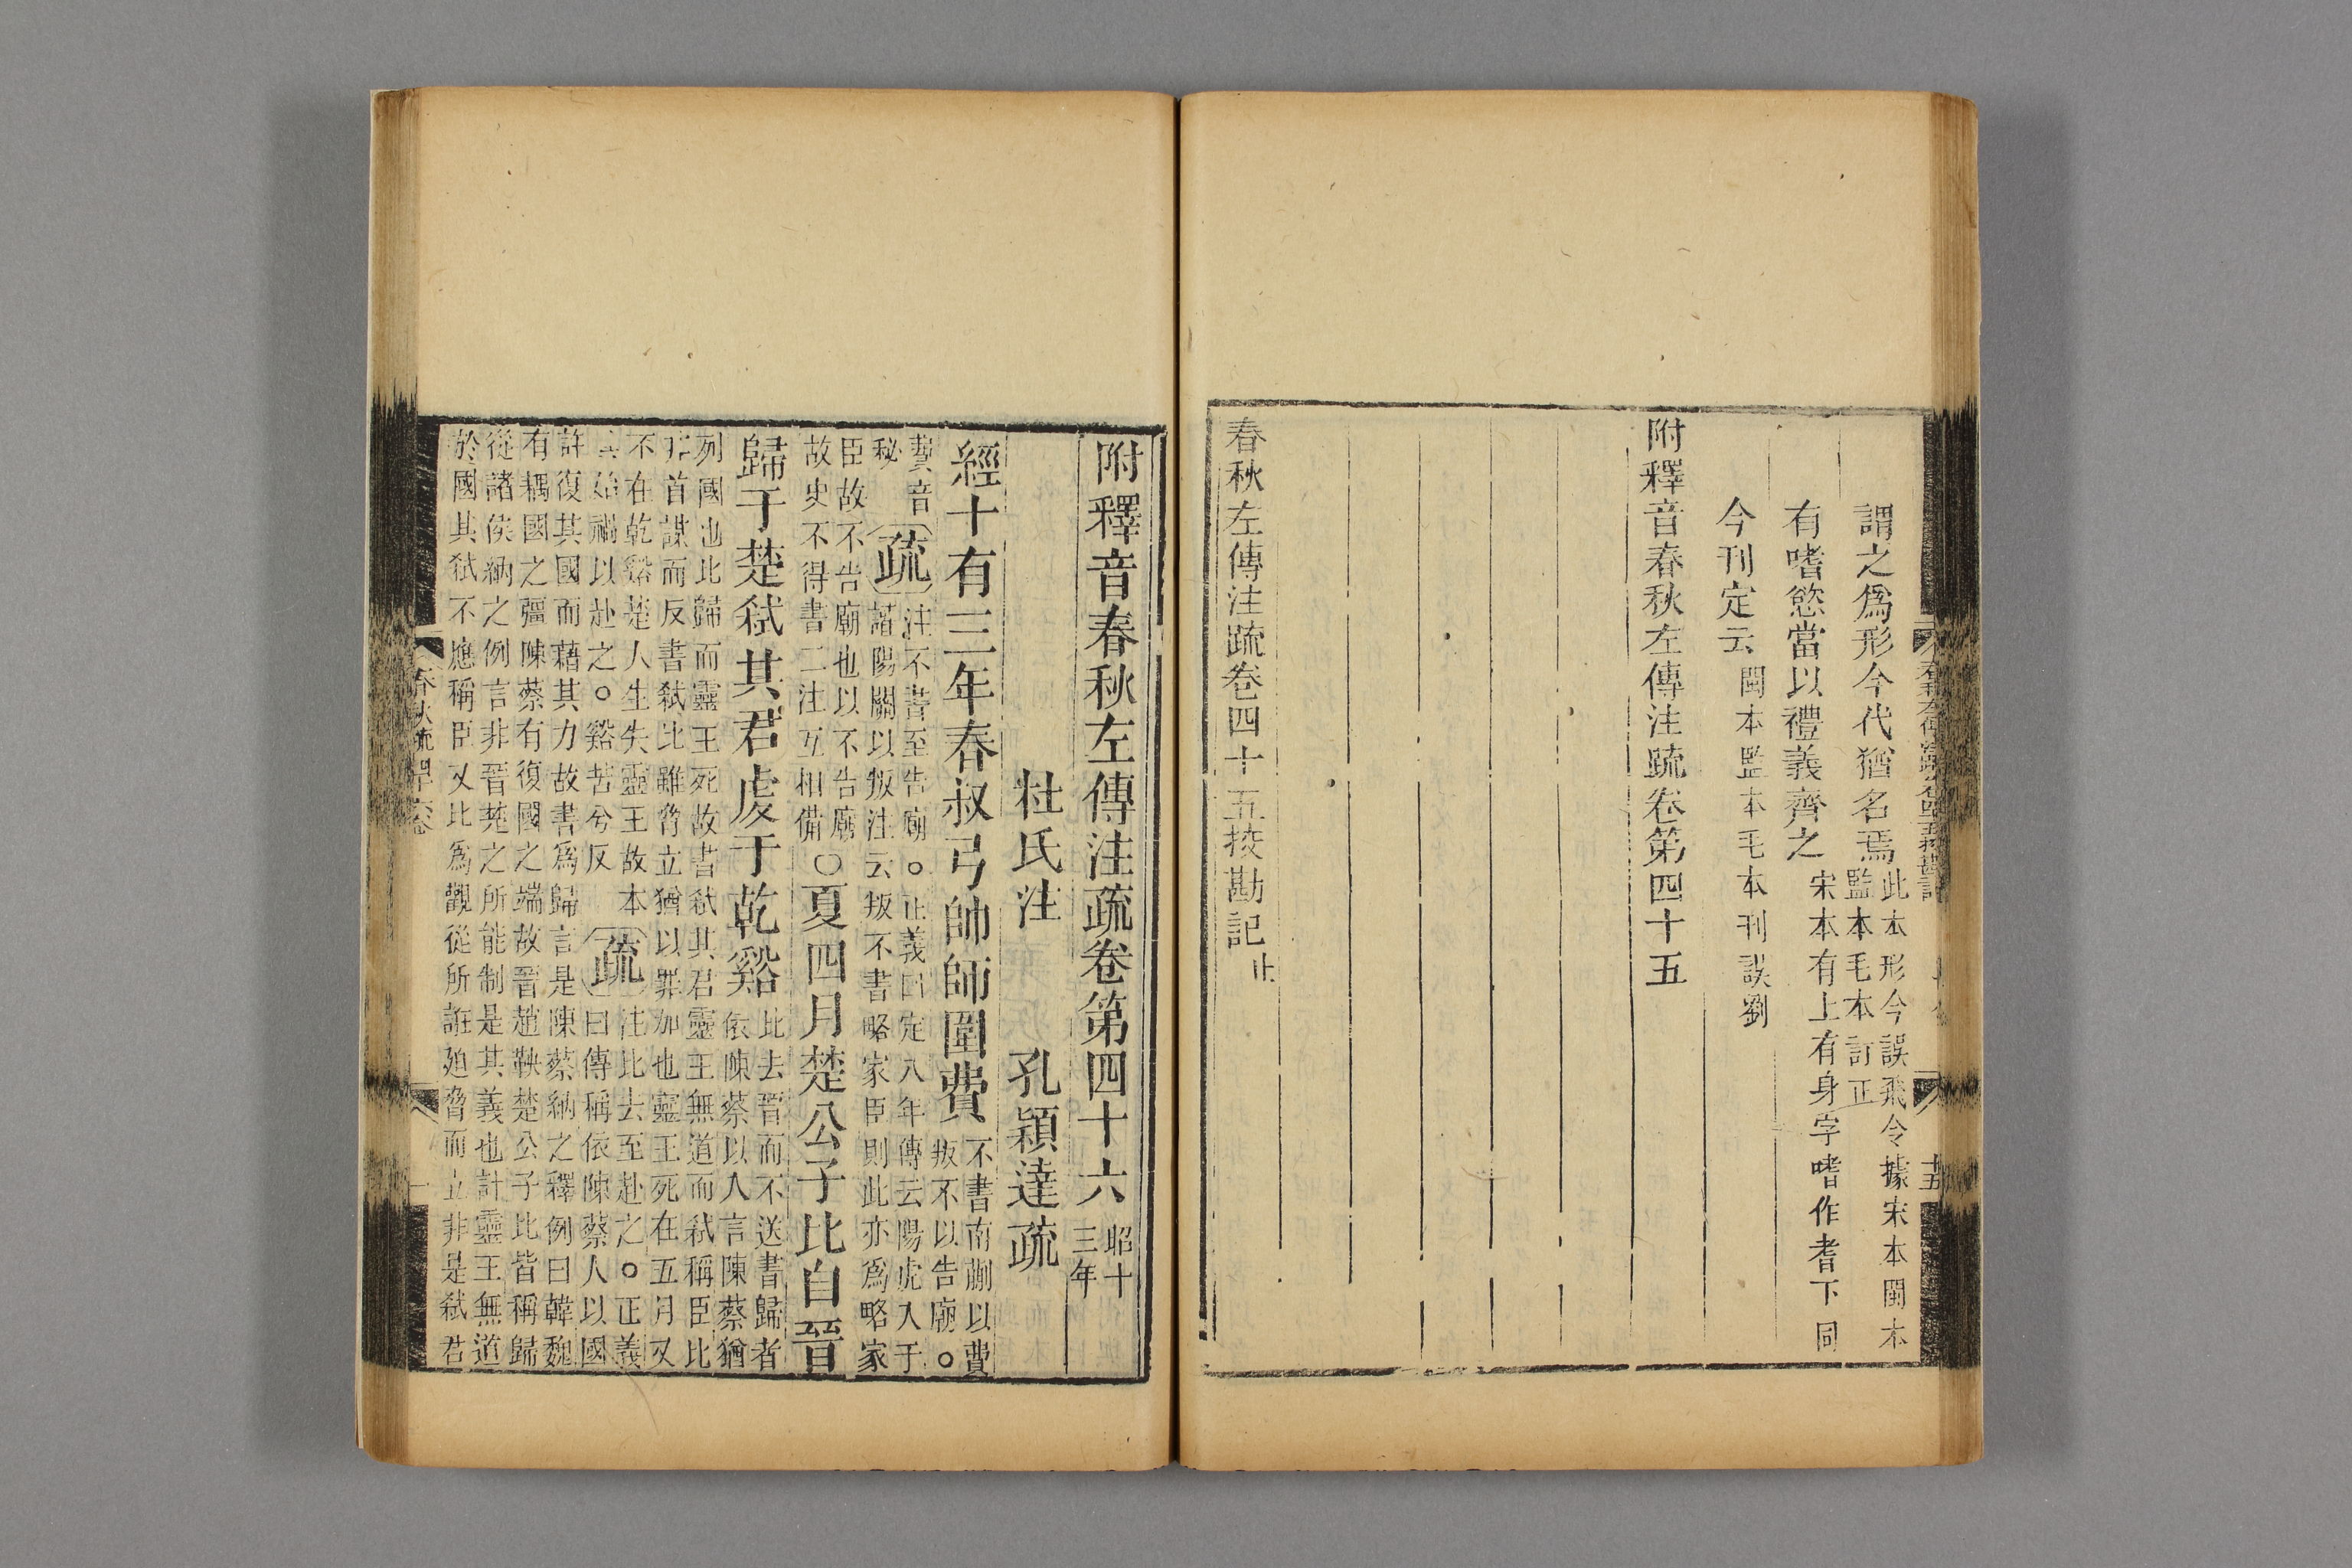 謂之爲形今代猶名焉此本形今誤飛令據宋本閩本
監本毛本訂正
有嗜慾當以禮義齊之宋本有上有身字嗜作耆下同
今刊定云閩本監本毛本刊誤劉
附釋音春秋左傳注疏卷第四十五
春秋左傳注疏卷四十五挍勘記止
附釋音春秋左傳注疏卷第四十六昭十
三年
杜氏注 孔穎達疏
經十有三年春叔弓帥師圍費不書南蒯以費
叛不以告廟○
費音
秘
疏
注不書至告廟○正義曰定八年傳云陽虎入于
讙陽關以叛注云叛不書略家臣則此亦爲略家
臣故不告廟也以不告廟
故史不得書二注互相備
○夏四月楚公子比自晉
歸于楚弒其君虔于乾谿比去晉而不送書歸者
依陳蔡以入言陳蔡猶
列國也比歸而靈王死故書弒其君靈王無道而弒稱臣比
非首謀而反書弒比雖脅立猶以罪加也靈王死在五月又
不在乾谿楚人生失靈王故本
其始禍以赴之○谿苦兮反
疏
注比去至赴之○正義
曰傳稱依陳蔡人以國
許復其國而藉其力故書爲歸言是陳蔡納之釋例曰韓魏
有耦國之彊陳蔡有復國之端故晉趙鞅楚公子比皆稱歸
從諸侯納之例言非晉楚之所能制是其義也計靈王無道
於國其弒不應稱臣又比爲觀從所誑廹脅而立非是弒君